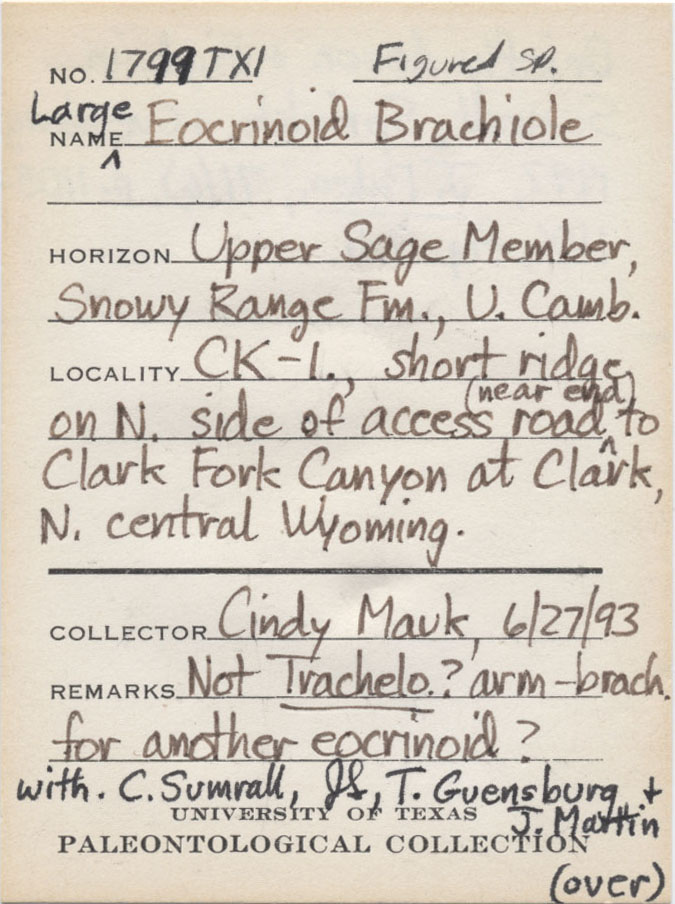 NO. 1799TX1 Figured sp.
Large
NAME Eocrinoid Brachiole
HORIZON Upper Sage Member,
Snowy Range Fm., U. Camb.
LOCALITY CK-1., short ridge
(near end)
on N. side of access road to
Clark Fork Canyon at Clark,
N. central Wyoming.
COLLECTOR Cindy Mauk, 6/27/93
REMARKS Not Trachelo.? arm-brach.
for another eocrinoid?
with. C. Sumrall, JS, T. Guensburg +
UNIVERSITY OF TEXAS
J. Martin
PALEONTOLOGICAL COLLECTION
(over)